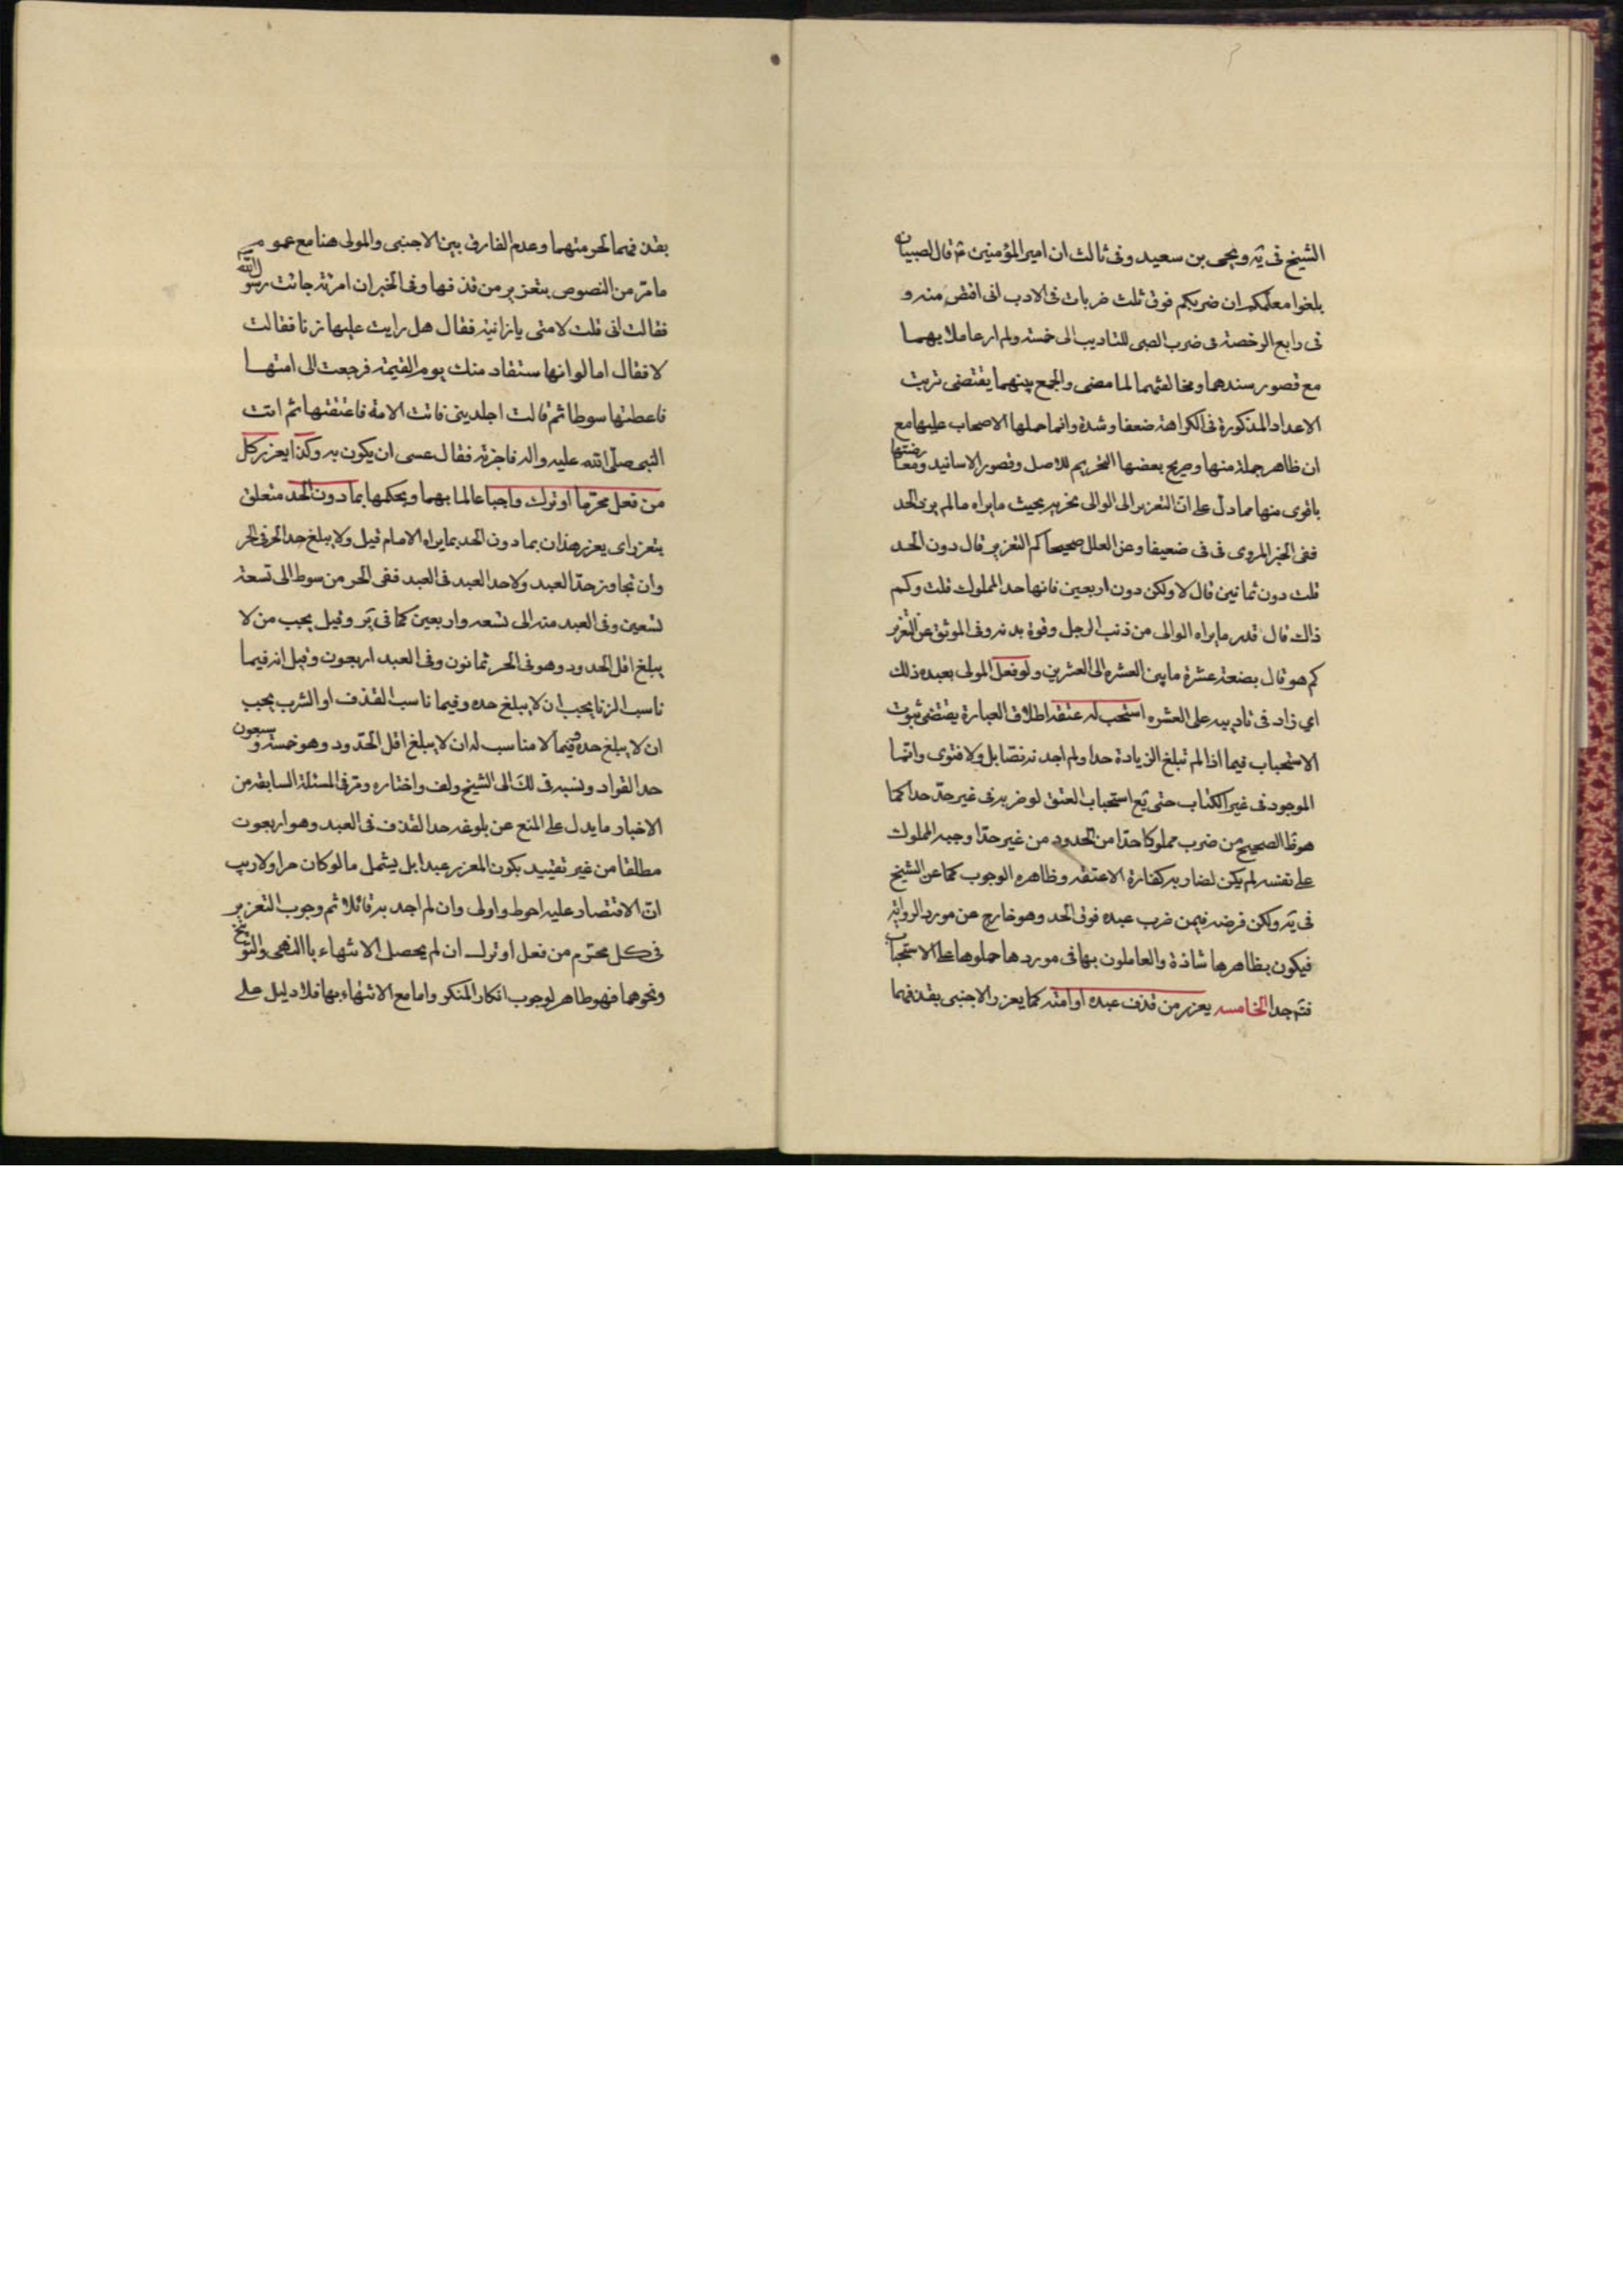 الشيخ فى يه ويحيى بن سعيد وفى ثالث ان امير المؤمنين ع قال لصبيان
بلغوا معلمكم ان ضربكم فوق ثلث ضربات فى الادب انى اقتص منه و
فى رابع الرخصة فى ضرب الصبى للتاديب الى خمسة ولم ار عاملا بهما
مع قصور سندهما ومخالفتهما لما مضى والجمع بينهما يقتضى ترتب
الاعداد المذكورة فى الكراهة ضعفا وشدة وانما حملها الاصحاب عليها مع
ان ظاهر جملة منها وصريح بعضها التحريم للاصل وقصور الاسانيد ومعارضتها
باقوى منها مما دل على ان التعزير الى الوالى يخربه بحيث مايراه مالم يزد الحد
ففى الخبر المروى فى فى ضعيفا وعن العلل صحيحا كم التعزير قال دون الحد
قلت دون ثمانين قال لا ولكن دون اربعين فانها حد المملوك قلت وكم
ذاك قال قدر مايراه الوالى من ذنب الرجل وقوة بدنه وفى الموثق عن التعزير
كم هو قال بضعة عشرة مابين العشرة الى العشرين ولو فعل المولى بعبده ذلك
اي زاد فى تاديبه على العشرة استحب له عتقه اطلاق العبارة يقتضى ثبوت
الاستحباب فيما اذا لم تبلغ الزيادة حدا ولم اجد به نصا بل ولا فتوى وانما
الموجود فى غير الكتاب حتى يع استحباب العتق لو ضربه فى غير حد حدا كما
هو ظ الصحيح من ضرب مملوكا حدا من الحدود من غير حد اوجبه المملوك
على نفسه لم يكن لضاربه كفارة الا عتقه وظاهره الوجوب كما عن الشيخ
فى يه ولكن فرضه فيمن ضرب عبده فوق الحد وهو خارج عن مورد الرواية
فيكون بظاهرها شاذة والعاملون بها فى موردها حملوها على الاستحباب
فتم جدا الخامسه يعزر من قذف عبده او امته كما يعزر الاجنبى بقذفهما
بقذفهما لحرمتهما وعدم الفارق بين الاجنبى والمولى هنا مع عموم
مامر من النصوص بتعزير من قذفها وفى الخبر ان امرئة جائت رسول الله
فقالت انى قلت لامتى يازانية فقال هل رايت عليها زنا فقالت
لا فقال اما لو انها ستقاد منك يوم القيمة فرجعت الى امتها
فاعطتها سوطا ثم قالت اجلدينى فابت الامة فاعتقتها ثم اتت
النبى صلى الله عليه واله فاخبرته فقال عسى ان يكون به وكذا يعزر كل
من فعل محرما او ترك واجبا عالما بهما وبحكمها بما دون الحد متعلق
بتعزر اى يعزر هذان بما دون الحد بمايراه الامام قيل ولا يبلغ حد الحر فى الحر
وان تجاوز حد العبد ولا حد العبد فى العبد ففى الحر من سوط الى تسعة
تسعين وفى العبد منه الى تسعه واربعين كما فى ير وقيل يجب من لا
يبلغ اقل الحدود وهو فى الحر ثمانون وفى العبد اربعون وقيل انه فيما
ناسب الزنا يجب ان لا يبلغ حده وفيما ناسب القذف او الشرب يجب
ان لا يبلغ حده وفيما لا مناسب له ان لا يبلغ اقل الحدود وهو خمسة وسبعون
حد القواد ونسبه فى لك الى الشيخ ولف واختاره ومر فى المسئلة السابقة من
الاخبار مايدل على المنع عن بلوغه حد القذف فى العبد وهو اربعون
مطلقا من غير تقييد بكون المعزر عبدا بل يشمل مالو كان حرا ولا ريب
ان الاقتصار عليه احوط واولى وان لم اجد به قائلا ثم وجوب التعزير
فى كل محرم من فعل او ترك ان لم يحصل الانتهاء باالنهى والتوبيخ
ونحوهما فهو ظاهر لوجوب انكار المنكر واما مع الانتهاء بها فلا دليل على